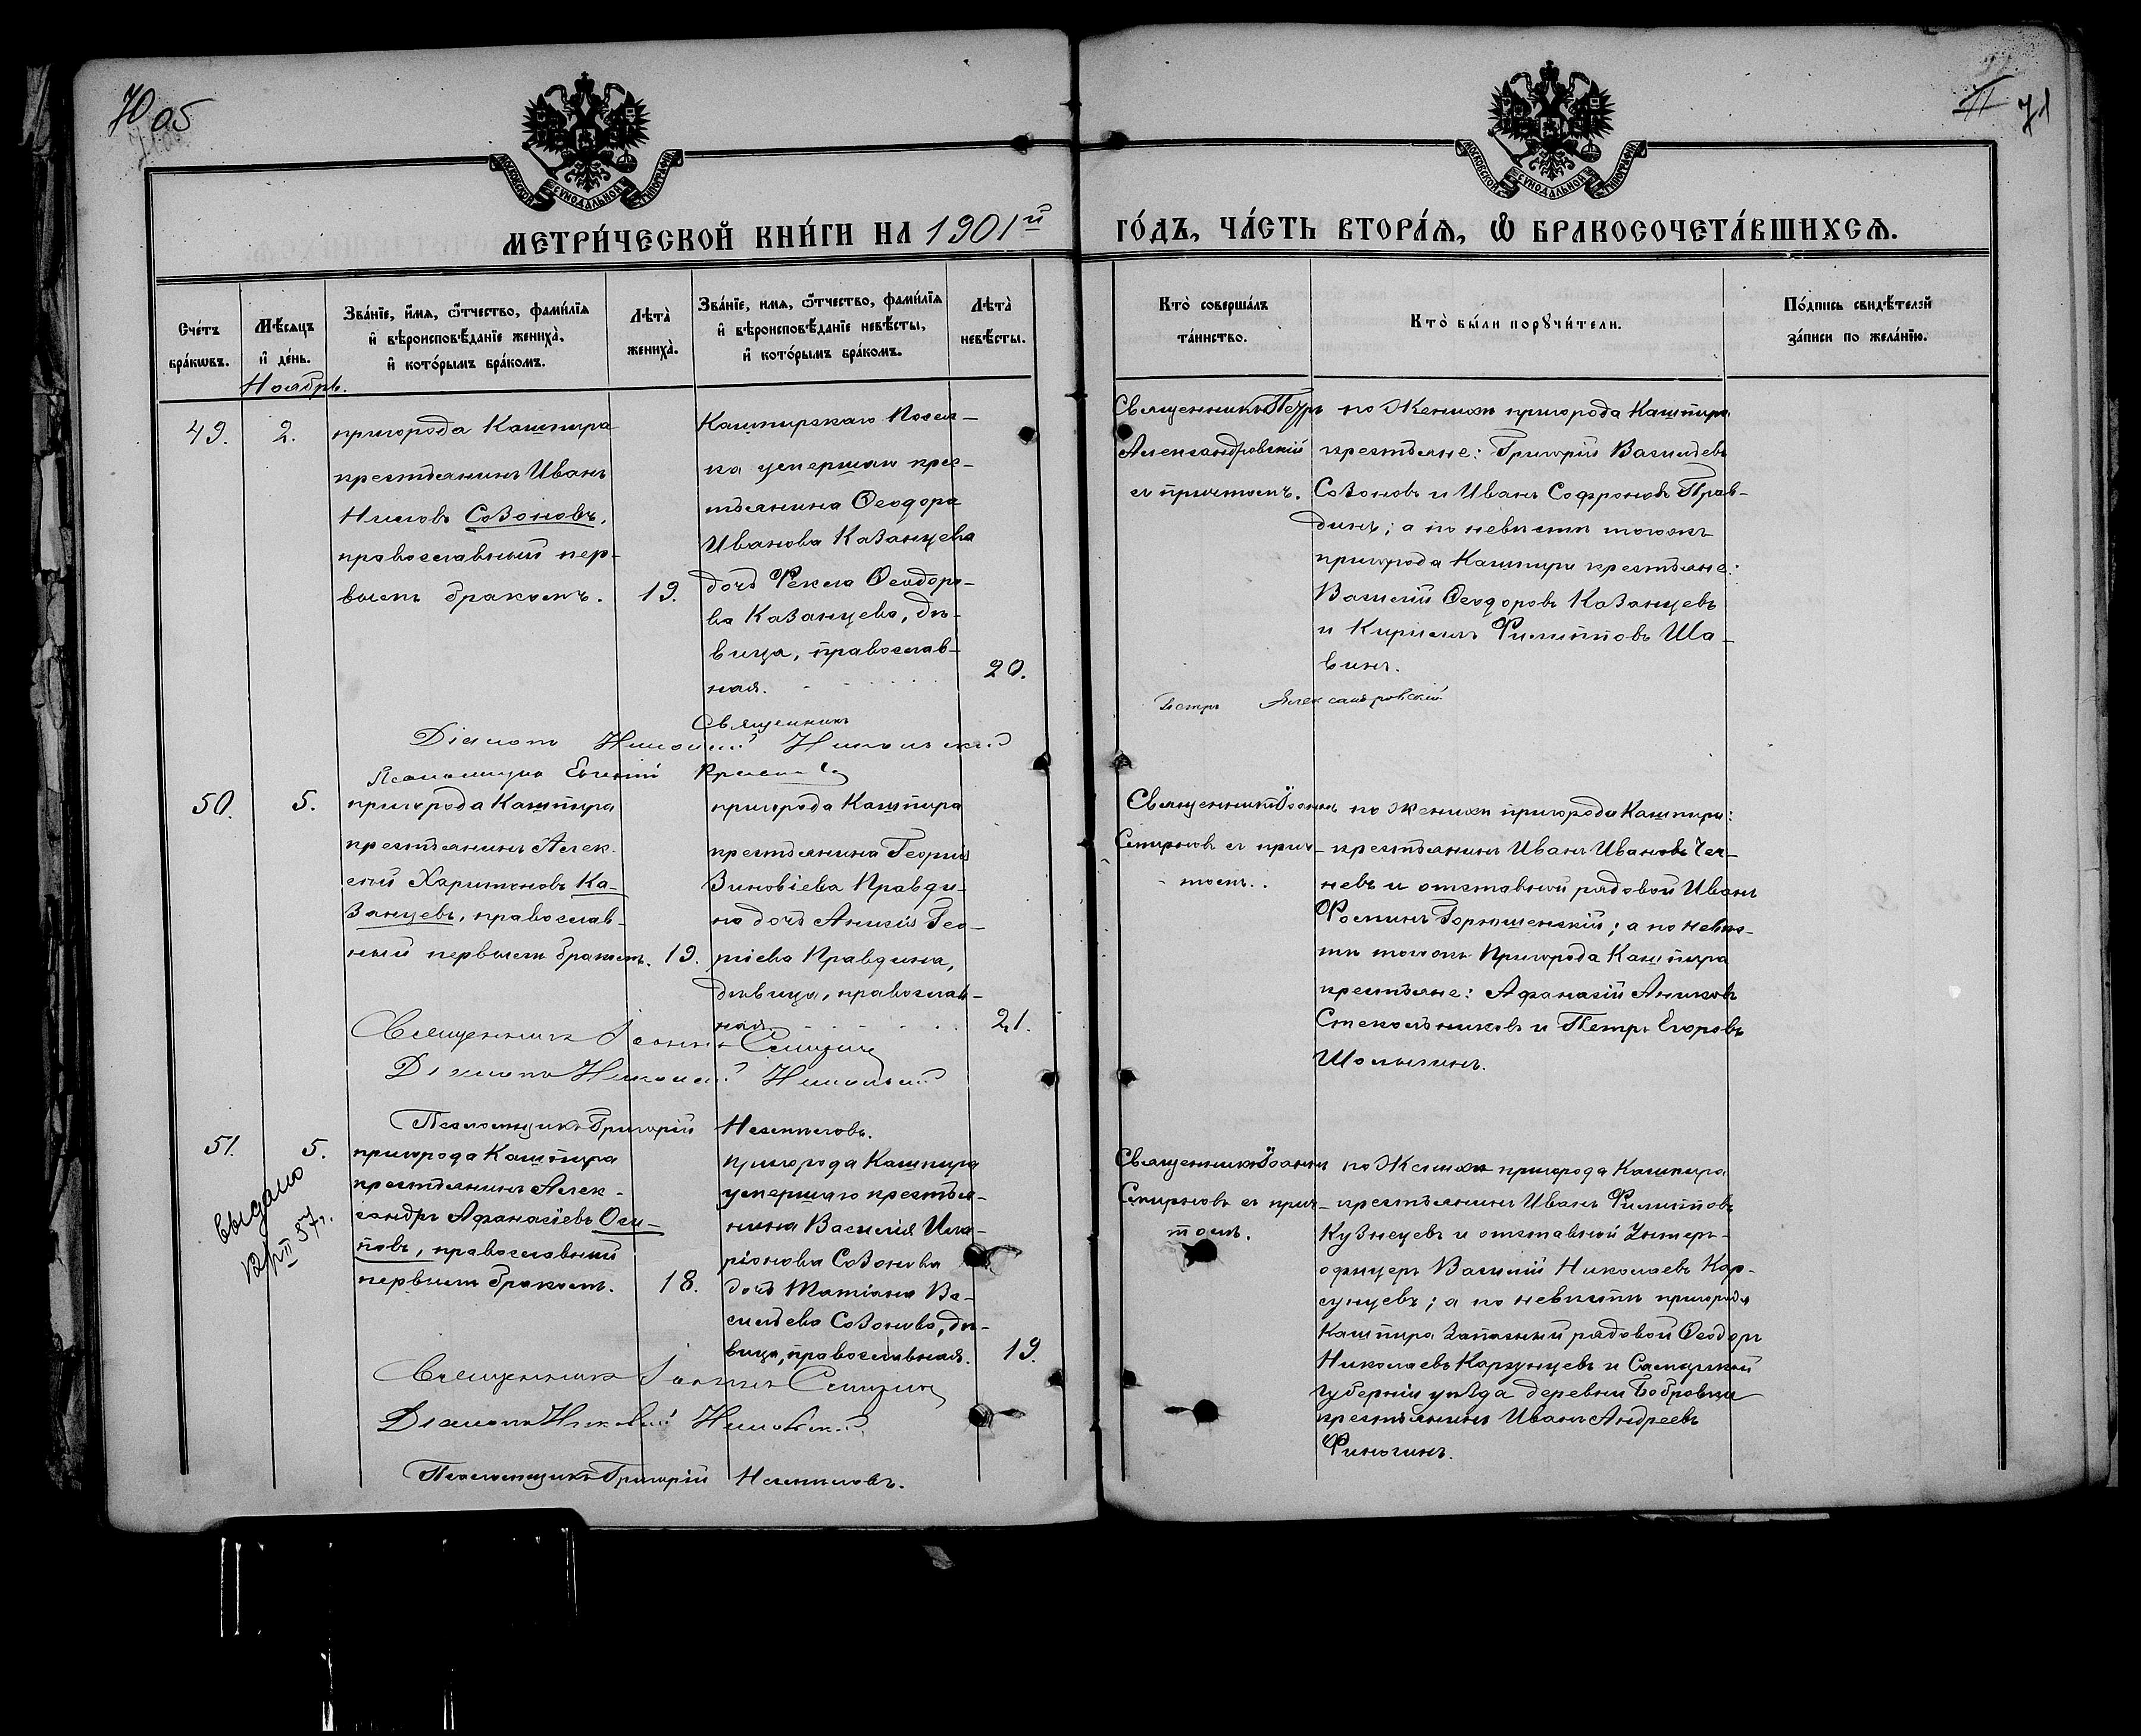 70 об
71
МОСКОВСКОЙ СѴНОДАЛЬНОЙ ТИПОГРАФІИ
МОСКОВСКОЙ СѴНОДАЛЬНОЙ ТИПОГРАФІИ
МЕТРИ́ЧЕСКОЙ КНИ́ГИ НА 1901й ГО́ДЪ, ЧА́СТЬ ВТОРА́Ѧ, Ѡ҆ БРАКОСОЧЕТА́ВШИХСѦ.
Сче́тъ
бра́кѡвъ.
Мѣ́сѧцъ
и҆ де́нь.
Зва́нїе, и҆́мѧ, ѻ҆́тчество, фами́лїѧ
и҆ вѣроисповѣ́данїе жениха̀,
и҆ кото́рымъ бра́комъ.
Лѣта̀
жениха̀.
Зва́нїе, и҆́мѧ, ѻ҆́тчество, фами́лїѧ
и҆ вѣроисповѣ́данїе невѣ́сты,
и҆ кото́рымъ бра́комъ.
Лѣта̀
невѣ́сты.
Кто̀ соверша́лъ
та́инство.
Кто̀ бы́ли порꙋчи́тели.
По́дпись свидѣ́телей
за́писи по жела́нїю.
Ноябрь.
49.
2.
пригорода Кашпира
крестьянинъ Иванъ
Ниловъ Созоновъ,
православный пер-
вымъ бракомъ.
19.
Кашпирскаго Посел-
ка умершаго крес-
тьянина Ѳеодора
Иванова Казанцева
дочь Фекла Ѳеодоро-
ва Казанцева, дѣ-
вица, православ-
ная.
20.
Священникъ Петръ
Александровскій
съ причтомъ.
по Женихѣ пригорода Кашпира
крестьяне: Григорій Васильевъ
Созоновъ и Иванъ Софроновъ Прав-
динъ; а по невѣстѣ тогожъ
пригорода Кашпира крестьяне:
Василій Ѳеодоровъ Казанцевъ
и Кириллъ Филипповъ Ша-
винъ.
Священникъ Петръ Александровскій
Діаконъ Николай Никольскій
Псаломщикъ Евгеній
50.
5.
пригорода Кашпира
крестьянинъ Алек-
сѣй Харитоновъ Ка-
занцевъ, православ-
ный первымъ бракомъ.
19.
пригорода Кашпира
крестьянина Георгія
Зиновіева Правди-
на дочь Анисія Геор-
гіева Правдина,
дѣвица, православ-
ная.
21.
Священникъ Іоаннъ
Смирновъ съ прич-
томъ.
по Женихѣ пригорода Кашпира:
крестьянинъ Иванъ Ивановъ Чел-
невъ и отставной рядовой Иванъ
Фоминъ Горюшенскій; а по невѣс-
тѣ тогожъ Пригорода Кашпира
крестьяне: Афанасій Аниковъ
Стекольниковъ и Петръ Егоровъ
Шолыгинъ.
Священникъ Іоаннъ Смирновъ
Діаконъ Николай Никольскій
Псаломщикъ Григорій
51.
5.
выдано
пригорода Кашпира
крестьянинъ Алек-
сандръ Афанасіевъ Оси-
повъ, православный
первымъ бракомъ.
18.
пригорода Кашпира
умершаго крестья-
нина Василія Ила-
ріонова Созонова
дочь Татіана Ва-
сильева Созонова, дѣ-
вица, православная.
19.
Священникъ Іоаннъ
Смирновъ съ прич-
томъ.
по Женихѣ пригорода Кашпира
крестьянинъ Иванъ Филипповъ
Кузнецовъ и отставной Унтеръ-
офицеръ Василій Николаевъ Кар-
сунцевъ; а по невѣстѣ пригорода
Кашпира Запасный рядовой Ѳеодоръ
Николаевъ Карсунцевъ и Самарской
губерніи уѣзда деревни Бобровки
крестьянинъ Иванъ Андреевъ
Финогинъ.
Священникъ Іоаннъ Смирновъ
Діаконъ Николай Никольскій
Псаломщикъ Григорій